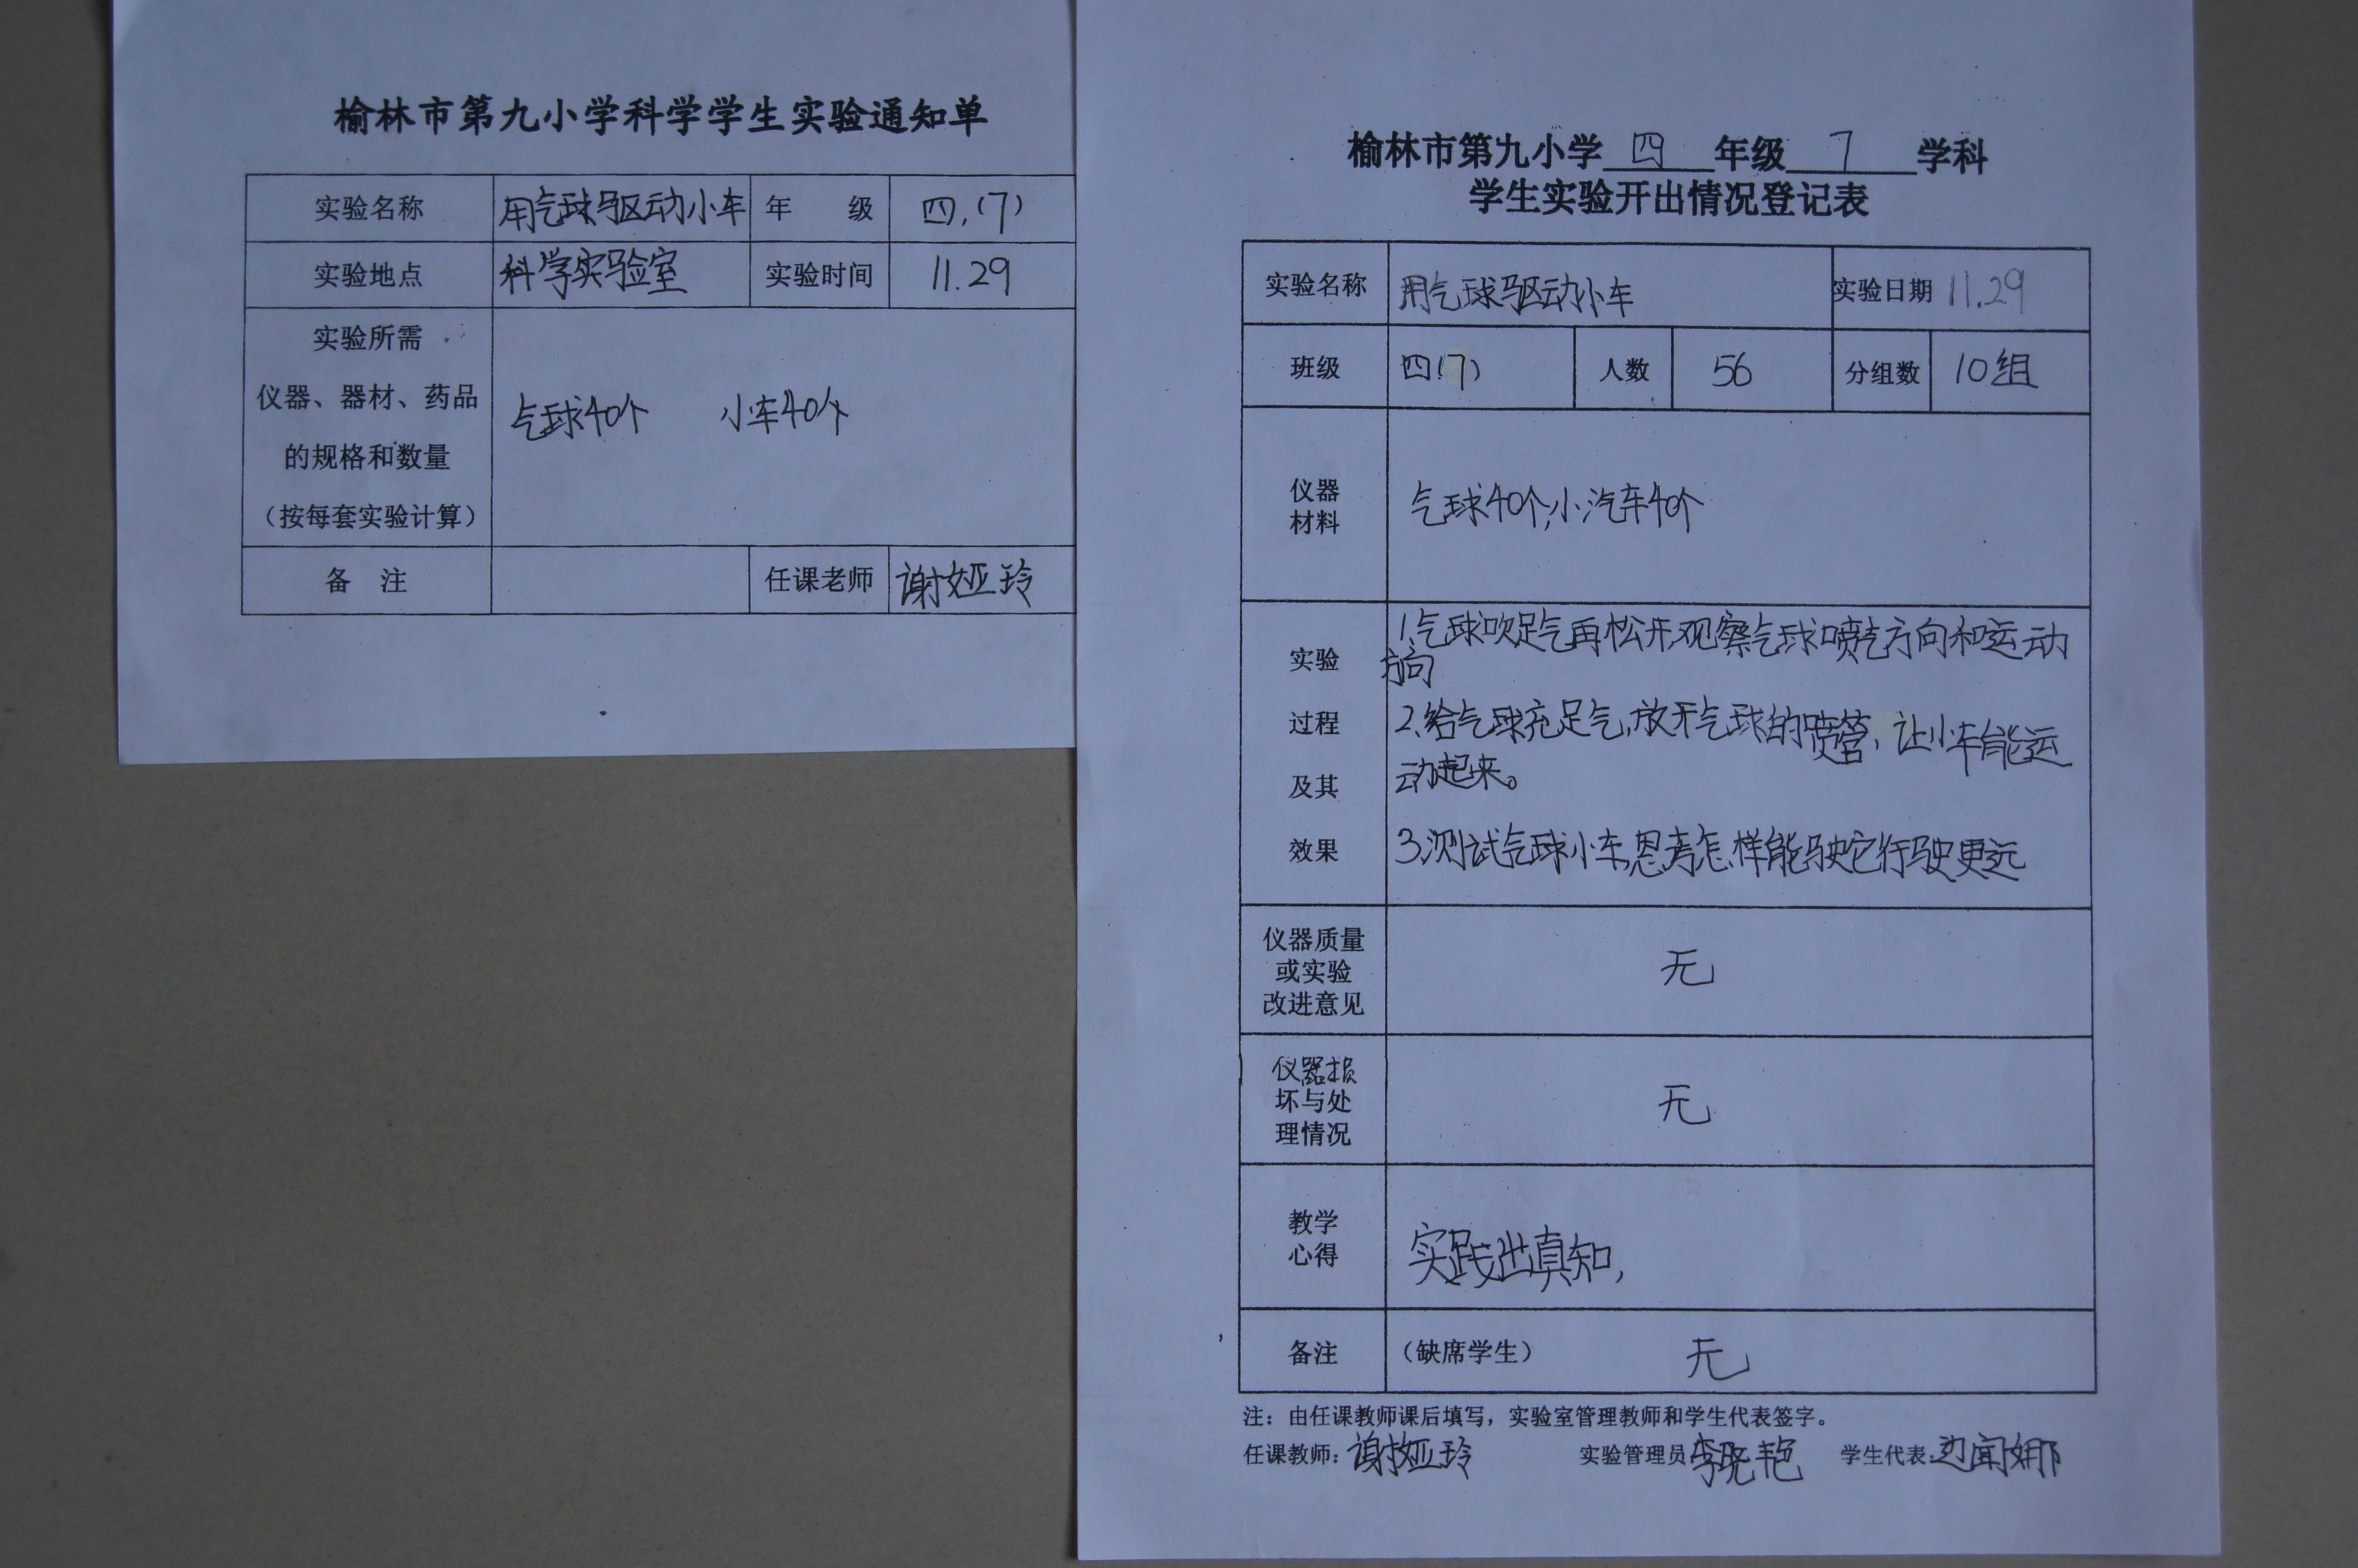 榆林市第九小学科学学生实验通知单
实验名称 用气球驱动小车 年 级 四.(7)
实验地点 科学实验室 实验时间 11.29
实验所需
仪器、器材、药品
的规格和数量
(按每套实验计算)
气球40个 小车40个
备 注 任课老师 谢娅玲
榆林市第九小学 四 年级 7 学科
学生实验开出情况登记表
实验名称 用气球驱动小车 实验日期 11.29
班级 四(7) 人数 56 分组数 10组
仪器
材料
气球40个,小汽车40个
实验
过程
及其
效果
1.气球吹足气再松开,观察气球喷气方向和运动
方向
2.给气球充足气,放开气球的喷管,让小车能运
动起来。
3.测试气球小车,思考怎样能驶它行驶更远
仪器质量
或实验
改进意见
无
仪器损
坏与处
理情况
无
教学
心得
实践出真知,
备注 (缺席学生) 无
注:由任课教师课后填写,实验室管理教师和学生代表签字。
任课教师:谢娅玲 实验管理员 李晓艳 学生代表:边闻娜